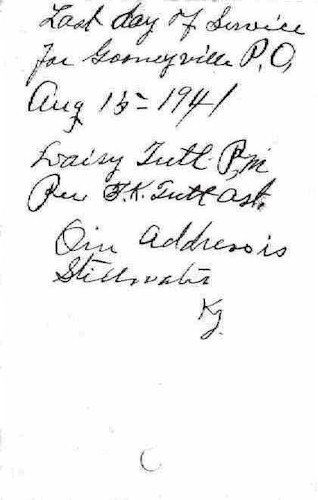 Last day of Service
for Gosneyville P.O,
Aug 15= 1941
Daisy Tutt P,m
Rev F.K. Tutt Ast.
Our Address is
Stillwater
Ky.